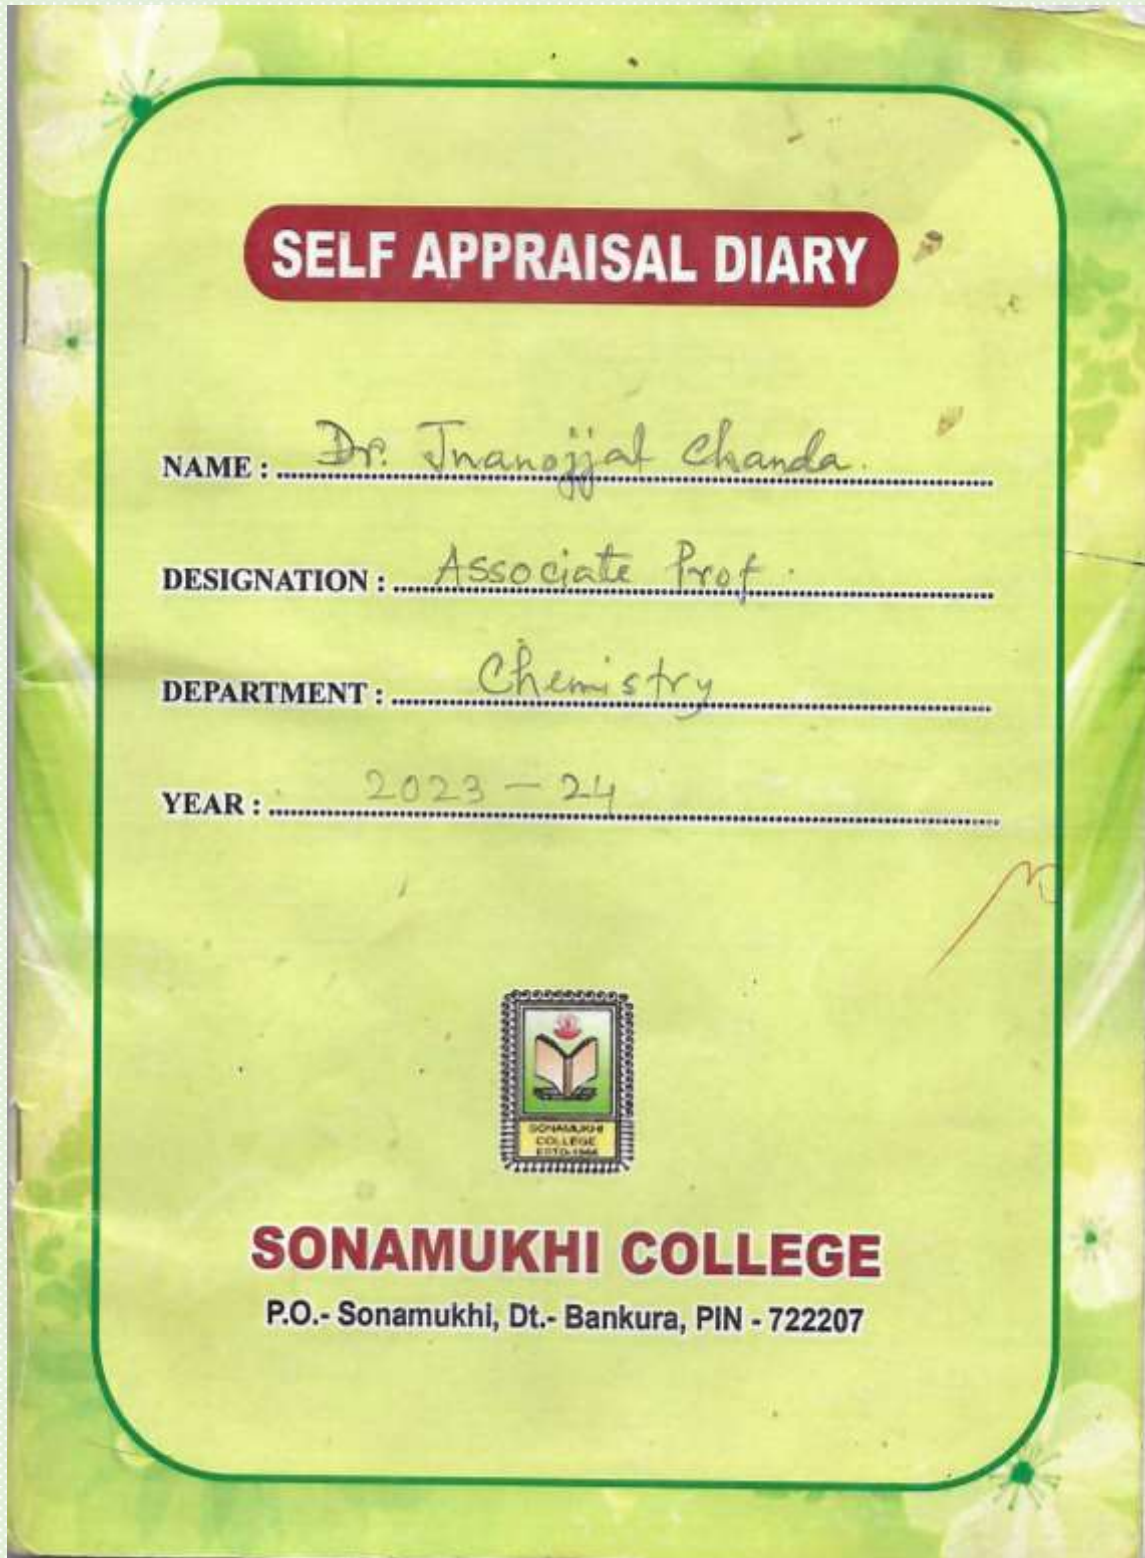 SELF APPRAISAL DIARY
NAME : Dr. Jnanojjal Chanda.
DESIGNATION : Associate Prof.
DEPARTMENT : Chemistry
YEAR : 2023 - 24
SONAMUKHI
COLLEGE
ESTD-1966
SONAMUKHI COLLEGE
P.O.- Sonamukhi, Dt.- Bankura, PIN - 722207